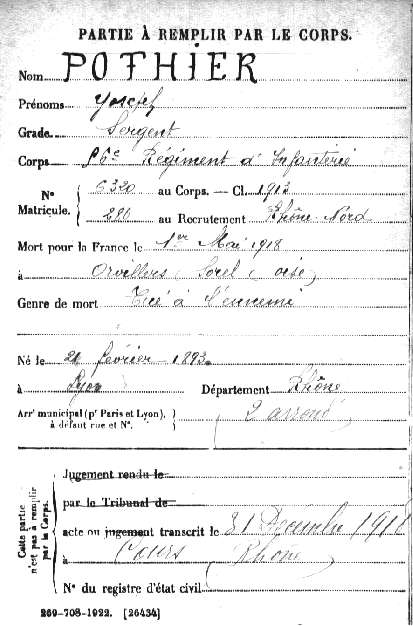 PARTIE À REMPLIR PAR LE CORPS.
Nom POTHIER
Prénoms Joseph
Grade Sergent
Corps 86e Régiment d'Infanterie
N° Matricule. 6320 au Corps. — Cl. 1913
280 au Recrutement Rhône-Nord
Mort pour la France le 1er Mai 1918
à Orvillers Sorel (oise)
Genre de mort Tué à l'ennemi
Né le 21 février 1893
à Lyon Département Rhône
Arrt municipal (pr Paris et Lyon), à défaut rue et N°. 2 arrond
Cette partie n'est pas à remplir par le Corps.
Jugement rendu le
par le Tribunal de
acte ou jugement transcrit le 31 Décembre 1918
à Cours (Rhône)
N° du registre d'état civil
269-708-1922. [26434]